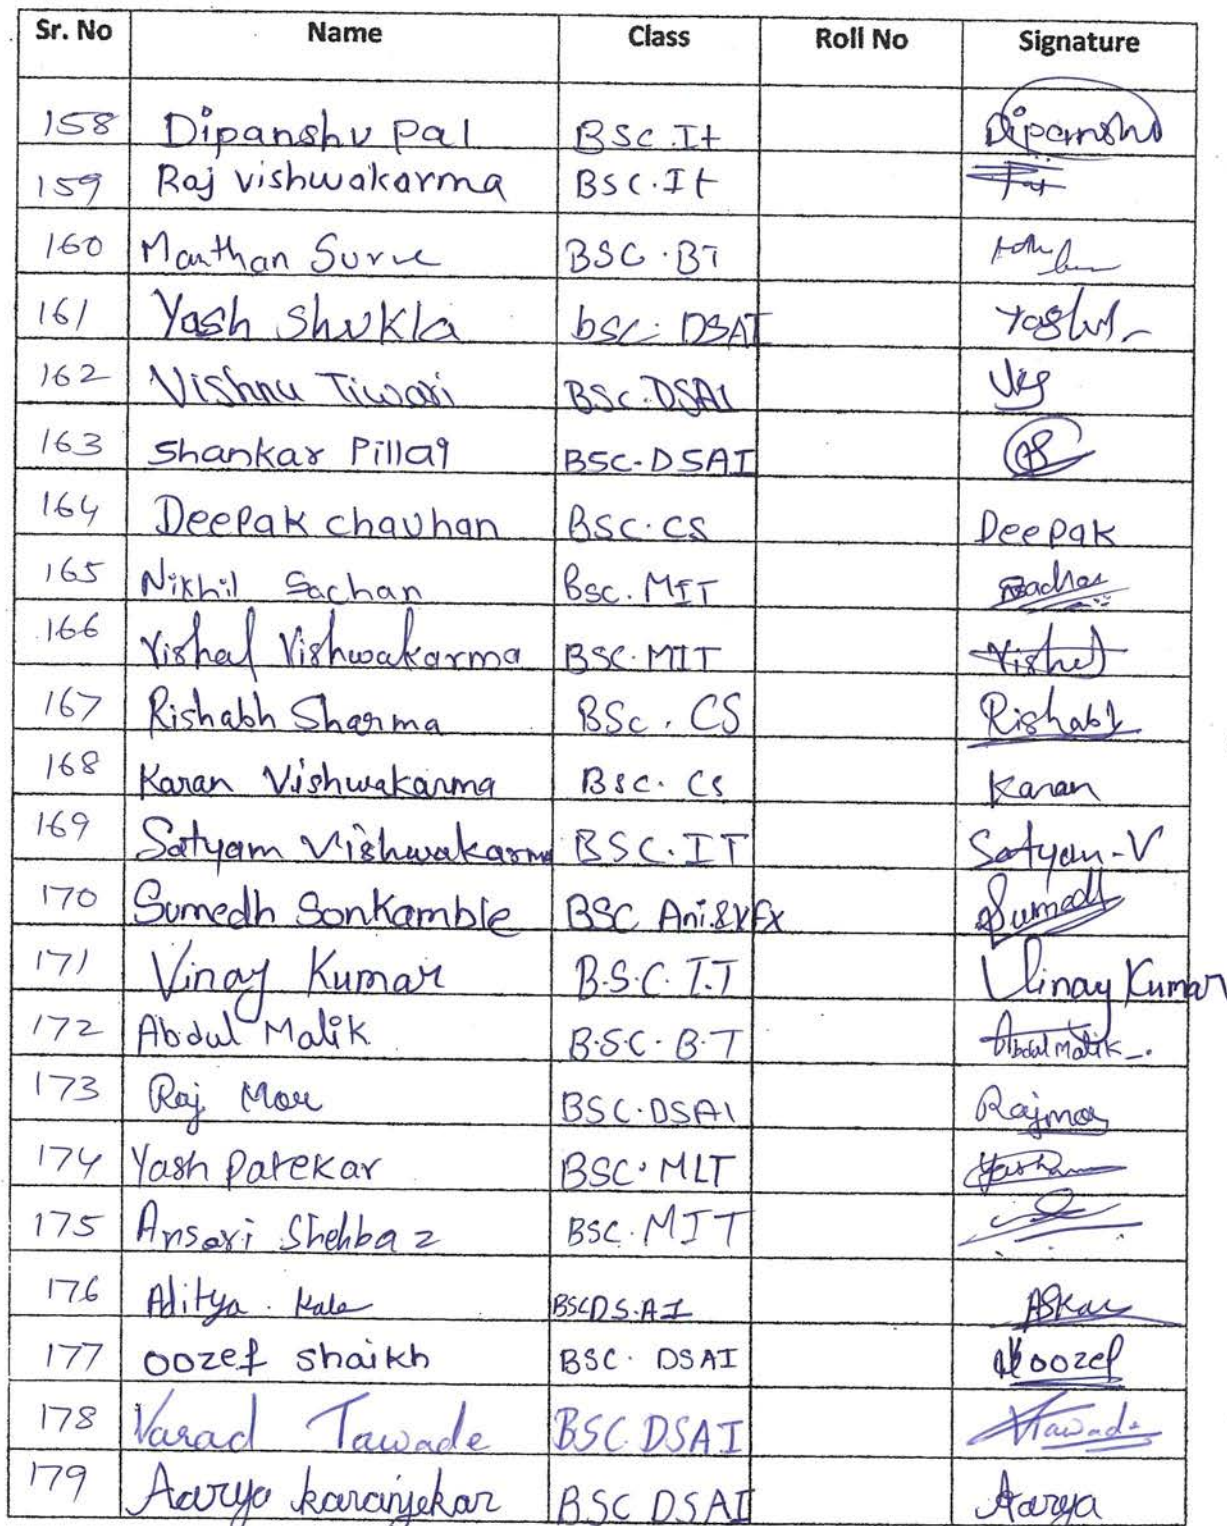 Sr. No Name Class Roll No Signature
158 Dipanshu pal BSC.It Dipanshu
159 Raj vishwakarma BSC.It
160 Manthan Surve BSC.BT
161 Yash Shukla bsc. DSAI
162 Vishnu Tiwari BSC.DSAI
163 Shankar Pillai BSC-DSAI
164 Deepak chauhan BSC.CS Deepak
165 Nikhil Sachan Bsc.MIT
166 Vishal Vishwakarma BSC.MIT Vishal
167 Rishabh Sharma BSc. CS Rishabh
168 Karan Vishwakarma Bsc. Cs Karan
169 Satyam Vishwakarma BSC.IT Satyam-V
170 Sumedh Sonkamble BSC Ani.&VFx Sumedh
171 Vinay Kumar B.S.C. I.T Vinay Kumar
172 Abdul Malik B.S.C. B.T Abdul Malik
173 Raj More BSC.DSAI Rajmore
174 Yash Patekar BSC.MLT Yash
175 Ansari Shehbaz BSC.MIT
176 Aditya. Kale BSCDS.AI
177 oozef shaikh BSC. DSAI oozef
178 Varad Tawade BSC.DSAI VTawade
179 Aarya karanjekar BSC DSAI Aarya